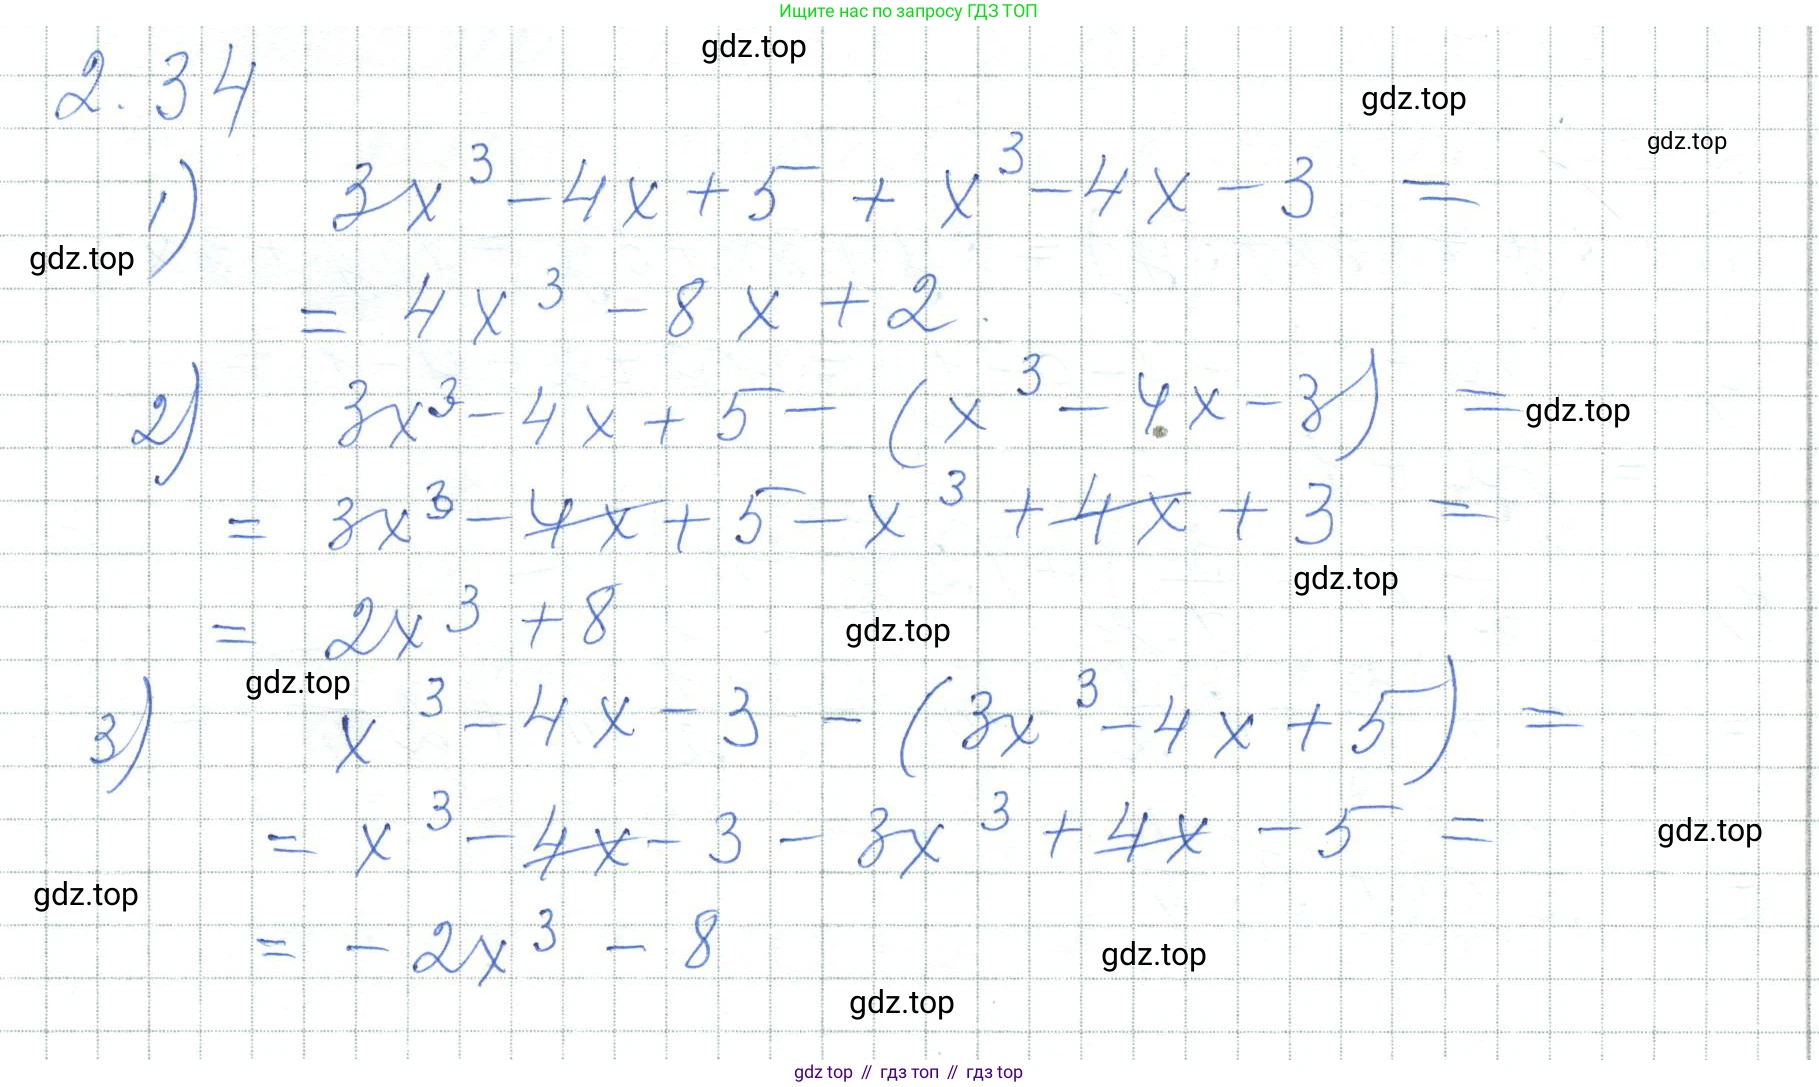 Ищите нас по запросу ГДЗ ТОП
gdz.top
2.34
gdz.top
gdz.top
1) 3x³ - 4x + 5 + x³ - 4x - 3 =
gdz.top
= 4x³ - 8x + 2.
2) 3x³ - 4x + 5 - (x³ - 4x - 3) =
gdz.top
= 3x³ - 4x + 5 - x³ + 4x + 3 =
gdz.top
= 2x³ + 8
gdz.top
gdz.top
3) x³ - 4x - 3 - (3x³ - 4x + 5) =
= x³ - 4x - 3 - 3x³ + 4x - 5 =
gdz.top
gdz.top
= - 2x³ - 8
gdz.top
gdz.top
gdz top // гдз топ // гдз top